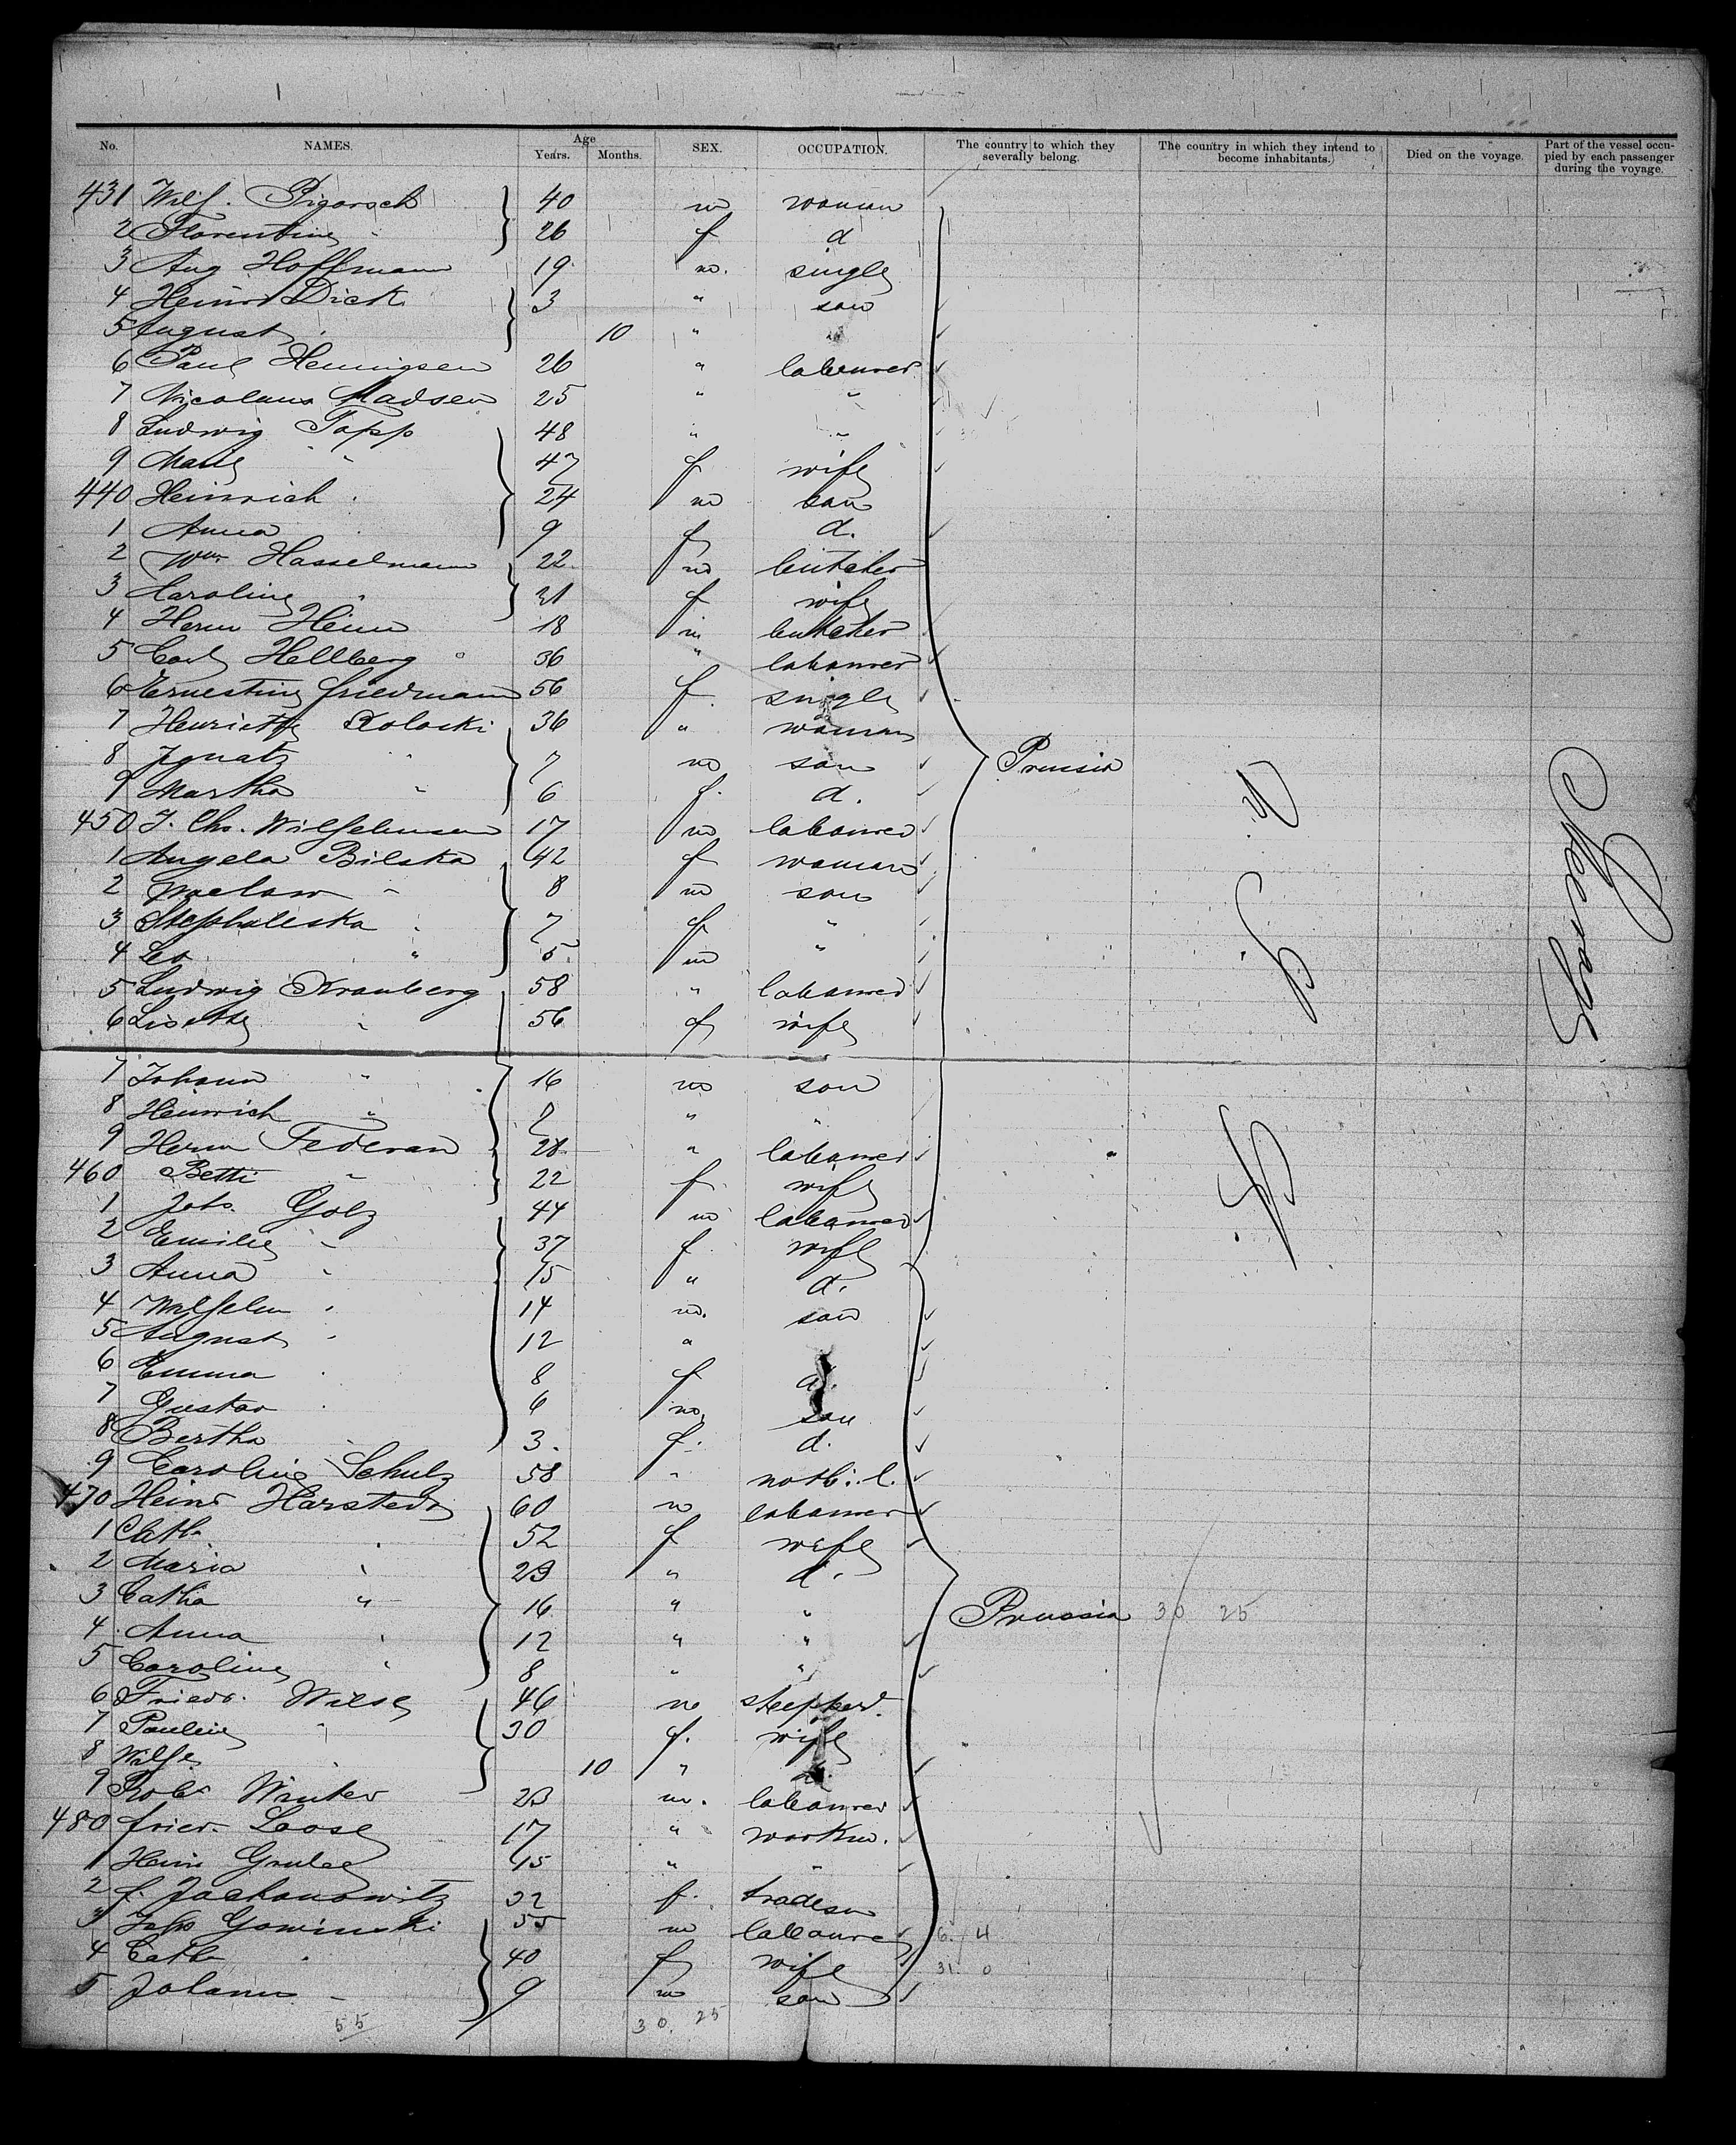 No. NAMES. Age Years. Months. SEX. OCCUPATION. The country to which they severally belong. The country in which they intend to become inhabitants. Died on the voyage. Part of the vessel occupied by each passenger during the voyage.
431 Wilh. Pigorsch 40 m woman
2 Florentine " 26 f d
3 Aug Hoffmann 19 m. single
4 Heinr Dick 3 " son
5 August " 10 " "
6 Paul Henningsen 26 " labourer
7 Nicolaus Madsen 25 " "
8 Ludwig Topp 48 " "
9 Marie " 47 f wife
440 Heinrich " 24 m son
1 Anna 9 f d.
2 Wm Hasselmann 22 m butcher
3 Caroline " 21 f wife
4 Herm Heim 18 m butcher
5 Carl Hellberg 36 " labourer
6 Ernestine Friedmann 56 f single
7 Henriette Kolocki 36 " woman
8 Ignatz " 7 m son Prussia
9 Martha " 6 f. d.
450 J. Chr. Wilhelmsen 17 m labourer
1 Angela Bilska 42 f woman
2 " 8 m son
3 " 7 f "
4 Leo " 5 m "
5 Ludwig Kranberg 58 " labourer
6 Lisette " 56 f wife
7 Johann " 16 m son
8 Heinrich " "
9 Herm Federau 28 " labourer
460 Betti " 22 f wife
1 Joh. Golz 44 m labourer
2 Emilie " 37 f wife
3 Anna " 15 " d.
4 Wilhelm " 14 m. son
5 August " 12 "
6 Emma " 8 f d.
7 Gustav " 6 m son
8 Bertha 3. f. d.
9 Caroline Schulz 58 "
470 Heinr Harstedt 60 m labourer
1 Cath. " 52 f wife
2 Maria " 23 " d.
3 Catha " 16 " " Prussia 30 25
4 Anna " 12 " "
5 Caroline " 8 " "
6 Friedr. Wilse 46 m shepherd.
7 Pauline " 30 f. wife
8 Wilhe. 10 "
9 Robt Winter 23 m. labourer
480 Fried. Loose 17 " workm.
1 Heinr Grulee 15 " "
2 F. Jachanowitz 32 f. tradesm
3 Jos Gowinski 55 m labourer 6 4
4 Cath " 40 f wife 31 0
5 Johann " 9 m son
55 30. 25
U. S. A.
Steerage